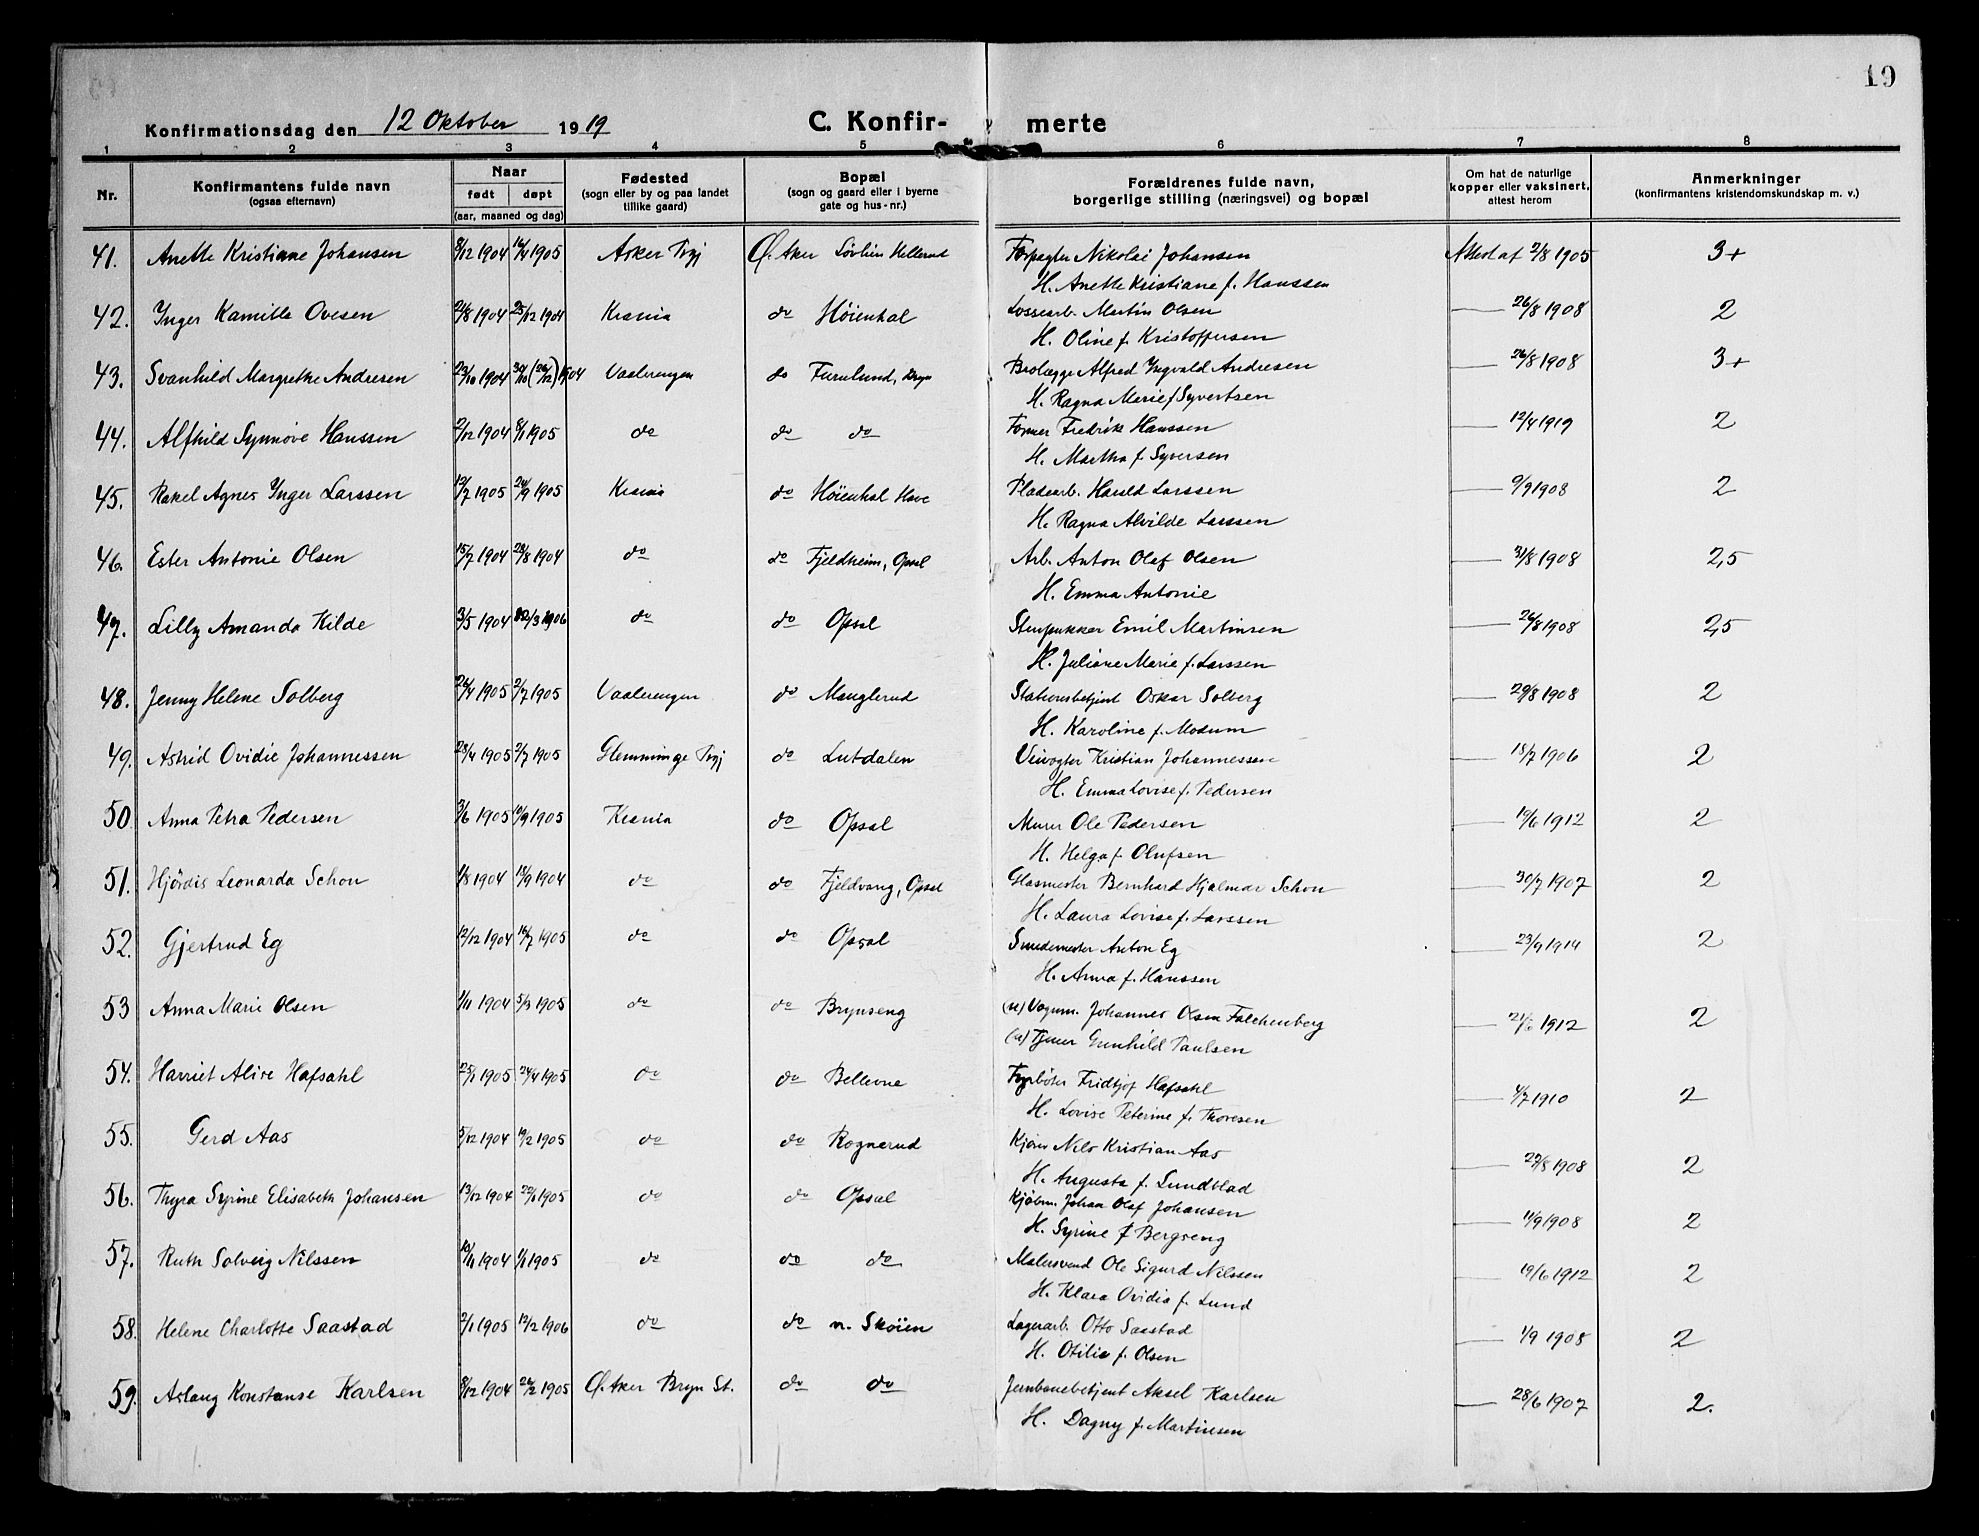 19
Konfirmationsdag den 12 Oktober 1919 C. Konfir- merte
1 2 3 4 5 6 7 8
Nr. Konfirmantens fulde navn (ogsaa efternavn) Naar født døpt (aar, maaned og dag) Fødested (sogn eller by og paa landet tillike gaard) Bopæl (sogn og gaard eller i byerne gate og hus-nr.) Forældrenes fulde navn, borgerlige stilling (næringsvei) og bopæl Om hat de naturlige kopper eller vaksinert, attest herom Anmerkninger (konfirmantens kristendomskundskap m. v.)
41. Anette Kristiane Johansen 8/12 1904 16/4 1905 Asker Prgj Ø. Aker Hellerud Forpagter Nikolai Johansen Attest af 2/8 1905 3+
H. Anette Kristiane f. Hanssen
42. Inger Kamilla Ovesen 21/8 1904 25/12 1904 Krania do Høienhal Lossearb. Martin Olsen — 26/8 1908 2
H. Oline f. Kristoffersen
43. Svanhild Margrethe Andresen 23/10 1904 30/10 (26/12) 1904 Vaalerengen do Furulund, Bryn Brolægge Alfred Ingvald Andresen — 26/8 1908 3+
H. Ragna Marie f Syvertsen
44. Alfhild Synnøve Hanssen 2/12 1904 8/1 1905 do do do Former Fredrik Hanssen — 12/4 1919 2
H. Martha f. Syversen
45. Rakel Agnes Inger Larssen 12/7 1905 24/9 1905 Krania do Høienhal Have Pladearb. Harald Larssen — 9/9 1908 2
H. Ragna Alvilde Larssen
46. Ester Antonie Olsen 15/7 1904 28/8 1904 do do Fjeldheim, Opsal Arb. Anton Olaf Olsen — 31/8 1908 2,5
H. Emma Antonie
47. Lilly Amanda Kilde 3/5 1904 /3 1906 do do Opsal Stenpukker Emil Martinsen — 26/8 1908 2,5
H. Juliane Marie f. Larssen
48. Jenny Helene Solberg 26/4 1905 2/7 1905 Vaalerengen do Manglerud Stationsbetjent Oskar Solberg — 29/8 1908 2
H. Karoline f. Modum
49. Astrid Ovidie Johannessen 28/4 1905 2/7 1905 Glemminge Prgj do Lutdalen Veivogter Kristian Johannessen — 18/7 1906 2
H. Emma Lovise f. Pedersen
50. Anna Petra Pedersen 3/6 1905 10/9 1905 Krania do Opsal Murer Ole Pedersen — 19/6 1912 2
H. Helga f. Olufsen
51. Hjørdis Leonarda Schon 1/8 1904 18/9 1904 do do Fjeldvang, Opsal Glasmester Bernhard Hjalmar Schon — 30/7 1907 2
H. Laura Lovise f. Larssen
52. Gjertrud Eg 12/12 1904 16/7 1905 do do Opsal Smedemester Anton Eg — 23/9 1914 2
H. Anna f. Hanssen
53 Anna Marie Olsen 1/11 1904 5/3 1905 do do Brynseng (u) Vognm. Johannes Olsen Falchenberg — 21/6 1912 2
(u) Tjener Gunhild Paulsen
54. Harriet Alice Hafsahl 25/1 1905 24/4 1905 do do Bellevue Fyrbøter Fridtjof Hafsahl — 4/7 1910 2
H. Lovise Peterine f. Thoresen
55. Gerd Aas 5/12 1904 19/2 1905 do do Rognerud Kjører Nils Kristian Aas — 27/8 1908 2
H. Augusta f. Lundblad
56. Thyra Syrine Elisabeth Johansen 13/12 1904 22/1 1905 do do Opsal Kjøbm. Johan Olaf Johansen — 11/9 1908 2
H. Syrine f Bergseng
57. Ruth Solveig Nilssen 10/11 1904 1/1 1905 do do do Malersvend Ole Sigurd Nilssen — 19/6 1912 2
H. Klara Ovidia f. Lund
58. Helene Charlotte Saastad 2/1 1905 12/2 1906 do do n. Skøien Lagerarb. Otto Saastad — 1/9 1908 2
H. Otilie f. Olsen
59. Aslaug Konstanse Karlsen 8/12 1904 26/2 1905 Ø. Aker Bryn St. do do Jernbanebetjent Aksel Karlsen — 28/6 1907 2.
H. Dagny f. Martinsen